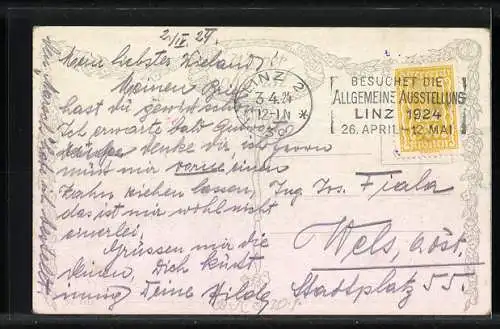 2/IV. 24.
Mein liebster Wieland!
Meinen Brief
hast du gewiss schon
Ich erwarte bald
denke dir, ich
muss mir vorne einen
Zahn ziehen lassen,
das ist mir wohl nicht
einerlei.
Grüssen mir die
deinen, Dich küsst
innig Deine Hilde
LINZ 2
3.4.24
12-1N
BESUCHET DIE
ALLGEMEINE AUSSTELLUNG
LINZ 1924
26. APRIL – 12. MAI
Herrn
Ing Jos. Fiala
Wels, o.öst.
Stadtplatz 55.